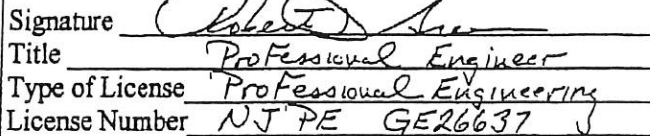 Signature Robert
Title Professional Engineer
Type of License Professional Engineering
License Number NJ PE GE26637